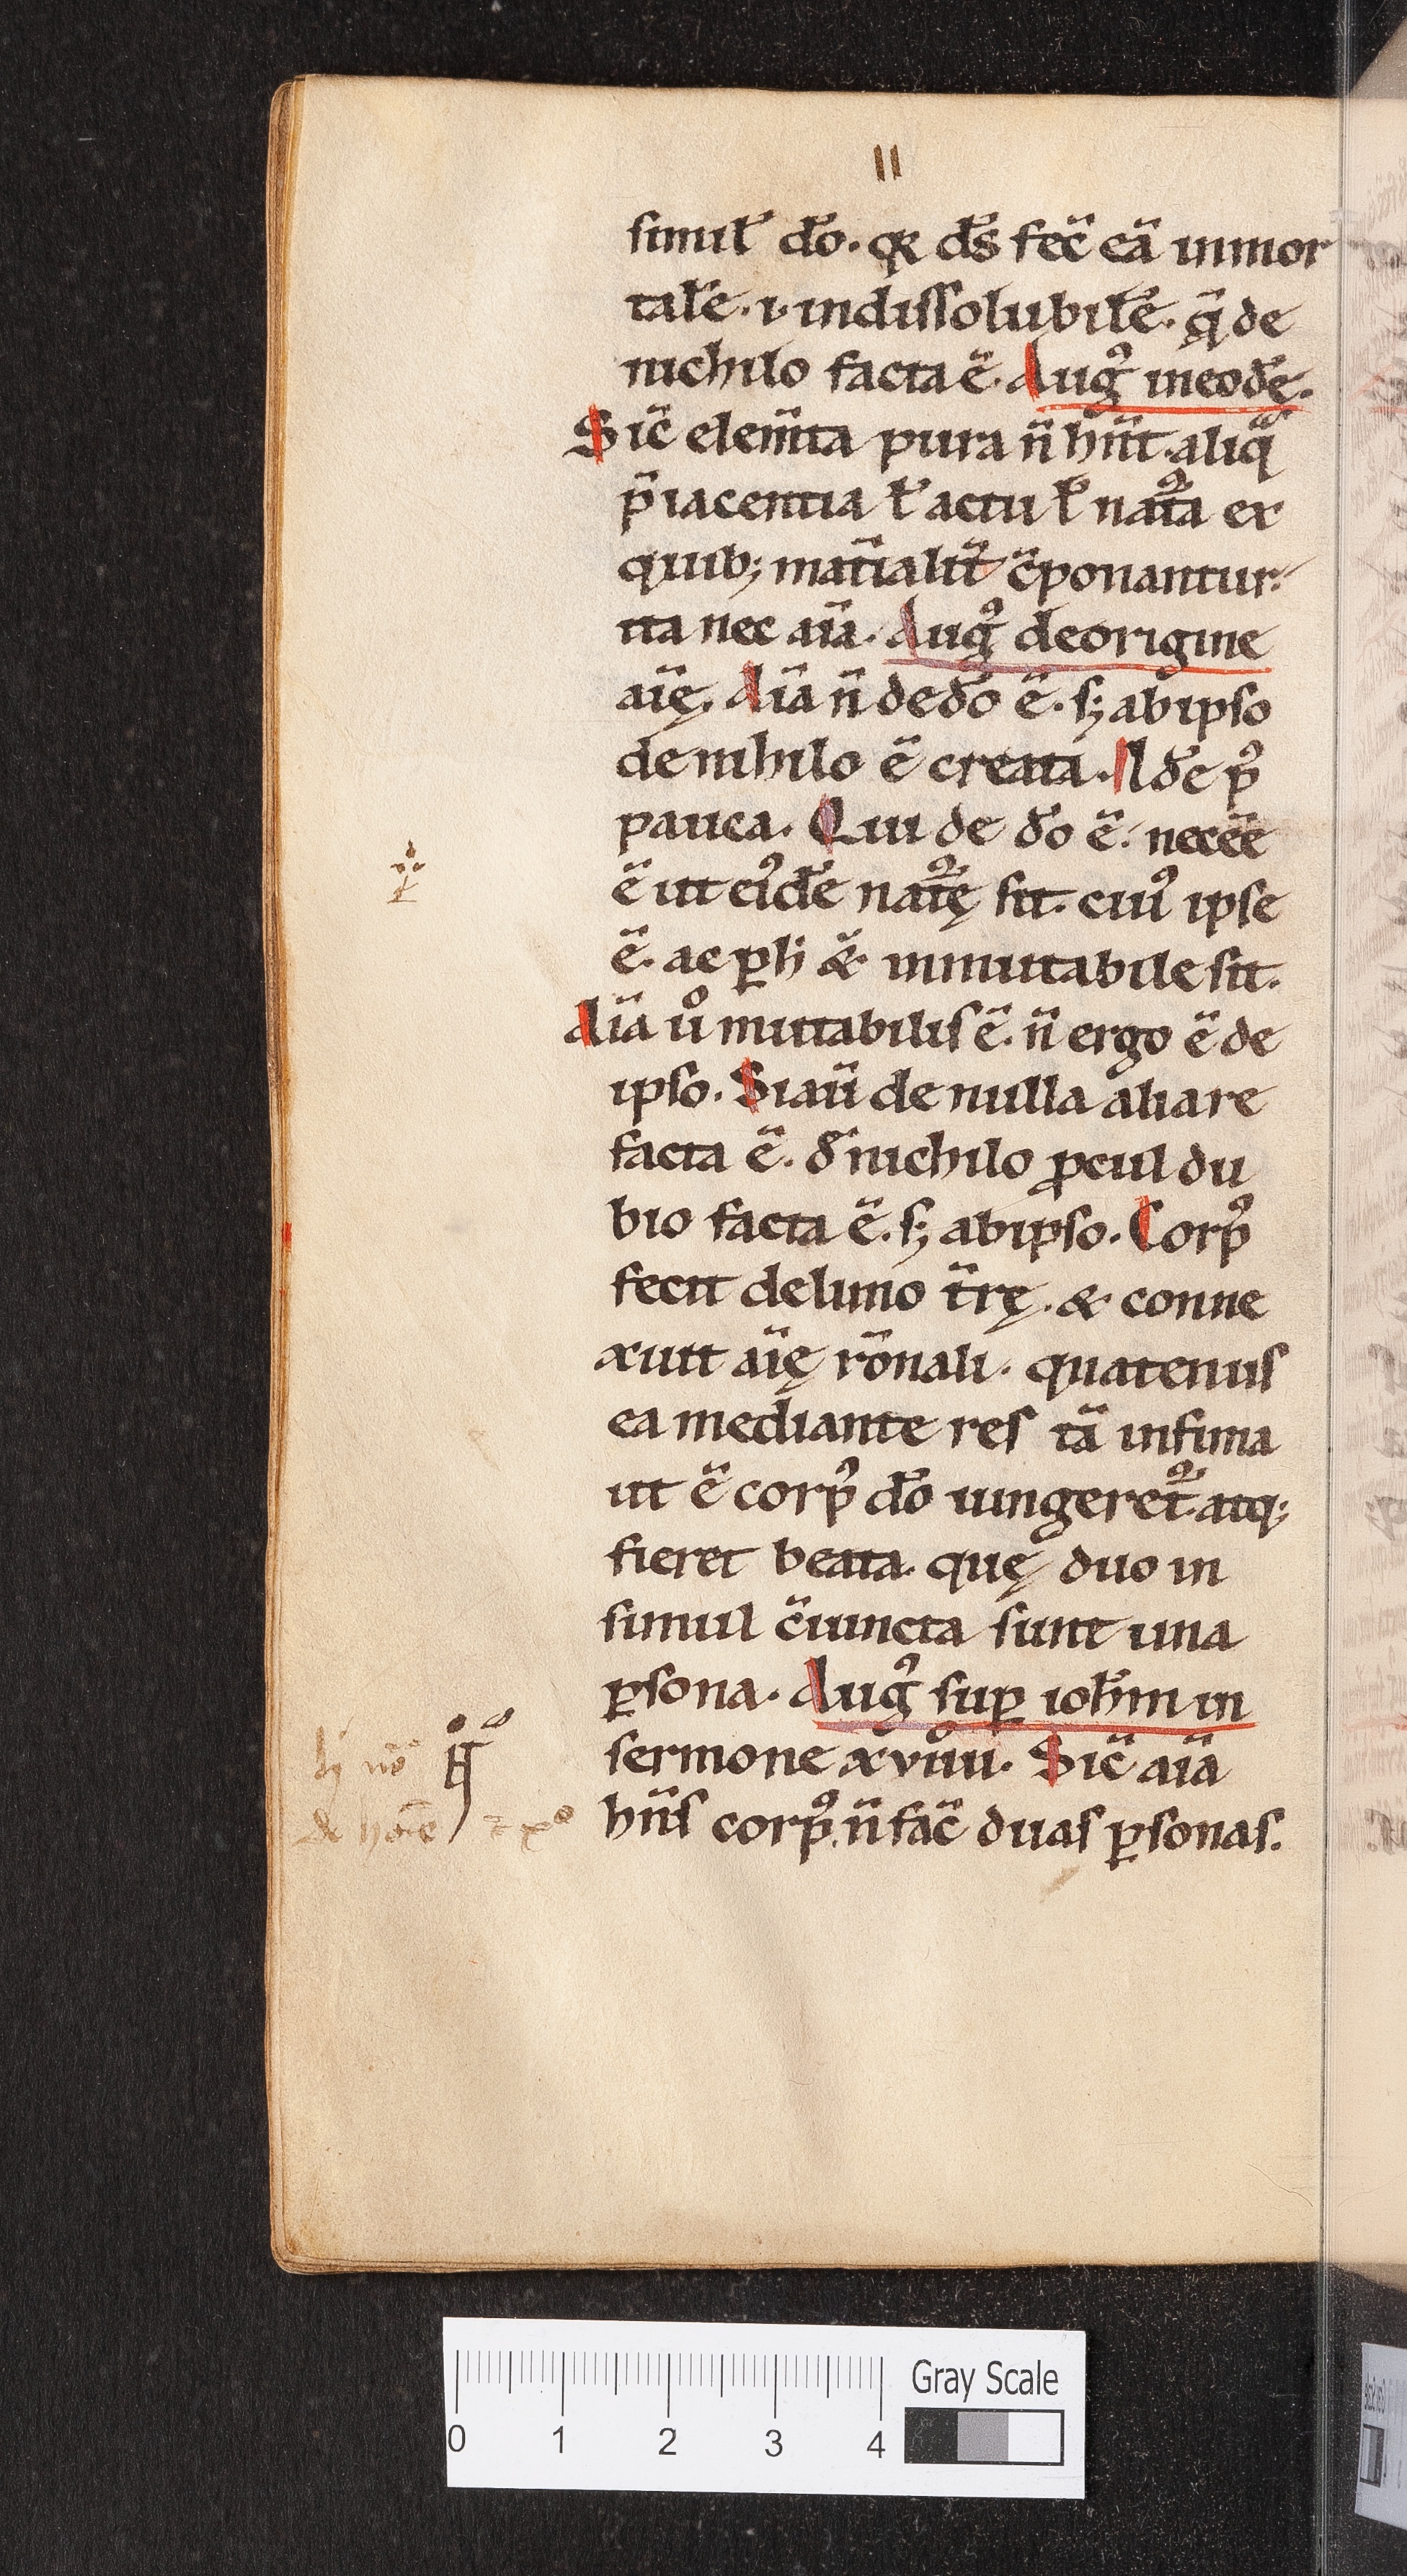 II
simil̄ dō. qꝛ ds̄ fec̄ eā inmor
tal̄e .i. indissolubil̄e. q̄ de
nichilo facta ē. Augꝰ in eodē.
Sic̄ elem̄ta pura n̄ hn̄t aliq̄
p̄iacentia ł actu ł nat̄a ex
quib; mat̄ialit̄ c̄ponantur.
ita nec aīa. Augꝰ de origine
aīę. Aīa n̄ de dō ē. s; ab ipso
de nihilo ē creata. Idē pꝰ
pauca. Qui de dō ē. necēe
ē ut eiꝰdē nat̄ę sit. cuiꝰ ipse
ē. ac ꝑ h̄ & inmutabile sit.
Aīa ů mutabilis ē. n̄ ergo ē de
ipso. Si aū de nulla alia re
facta ē. d̄ nichilo ꝓcul du
bio facta ē. s; ab ipso. Corpꝰ
fecit de limo t̄rę. & conne
xuit aīę rōnali. quatenus
ea mediante res tā infima
ut ē corpꝰ dō iungeret̄. atq;
fieret beata. quę duo in
simul c̄iuncta sunt una
ꝑsona. Augꝰ suꝑ ioh̄m in
sermone xviiii. Sic̄ aīa
hn̄s corpꝰ. n̄ fac̄ duas ꝑsonas.
0 1 2 3 4
Gray Scale